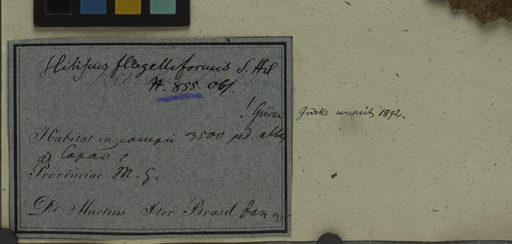 Hibiscus flagelliformis S. Hil
H. 855. Obs.
! Gürke
Gürke scripsit 1892.
Habitat in campis 3500 ped. altis
ad Capão
Provinciae M. G.
Dr. Martius Iter Brasil. Jan